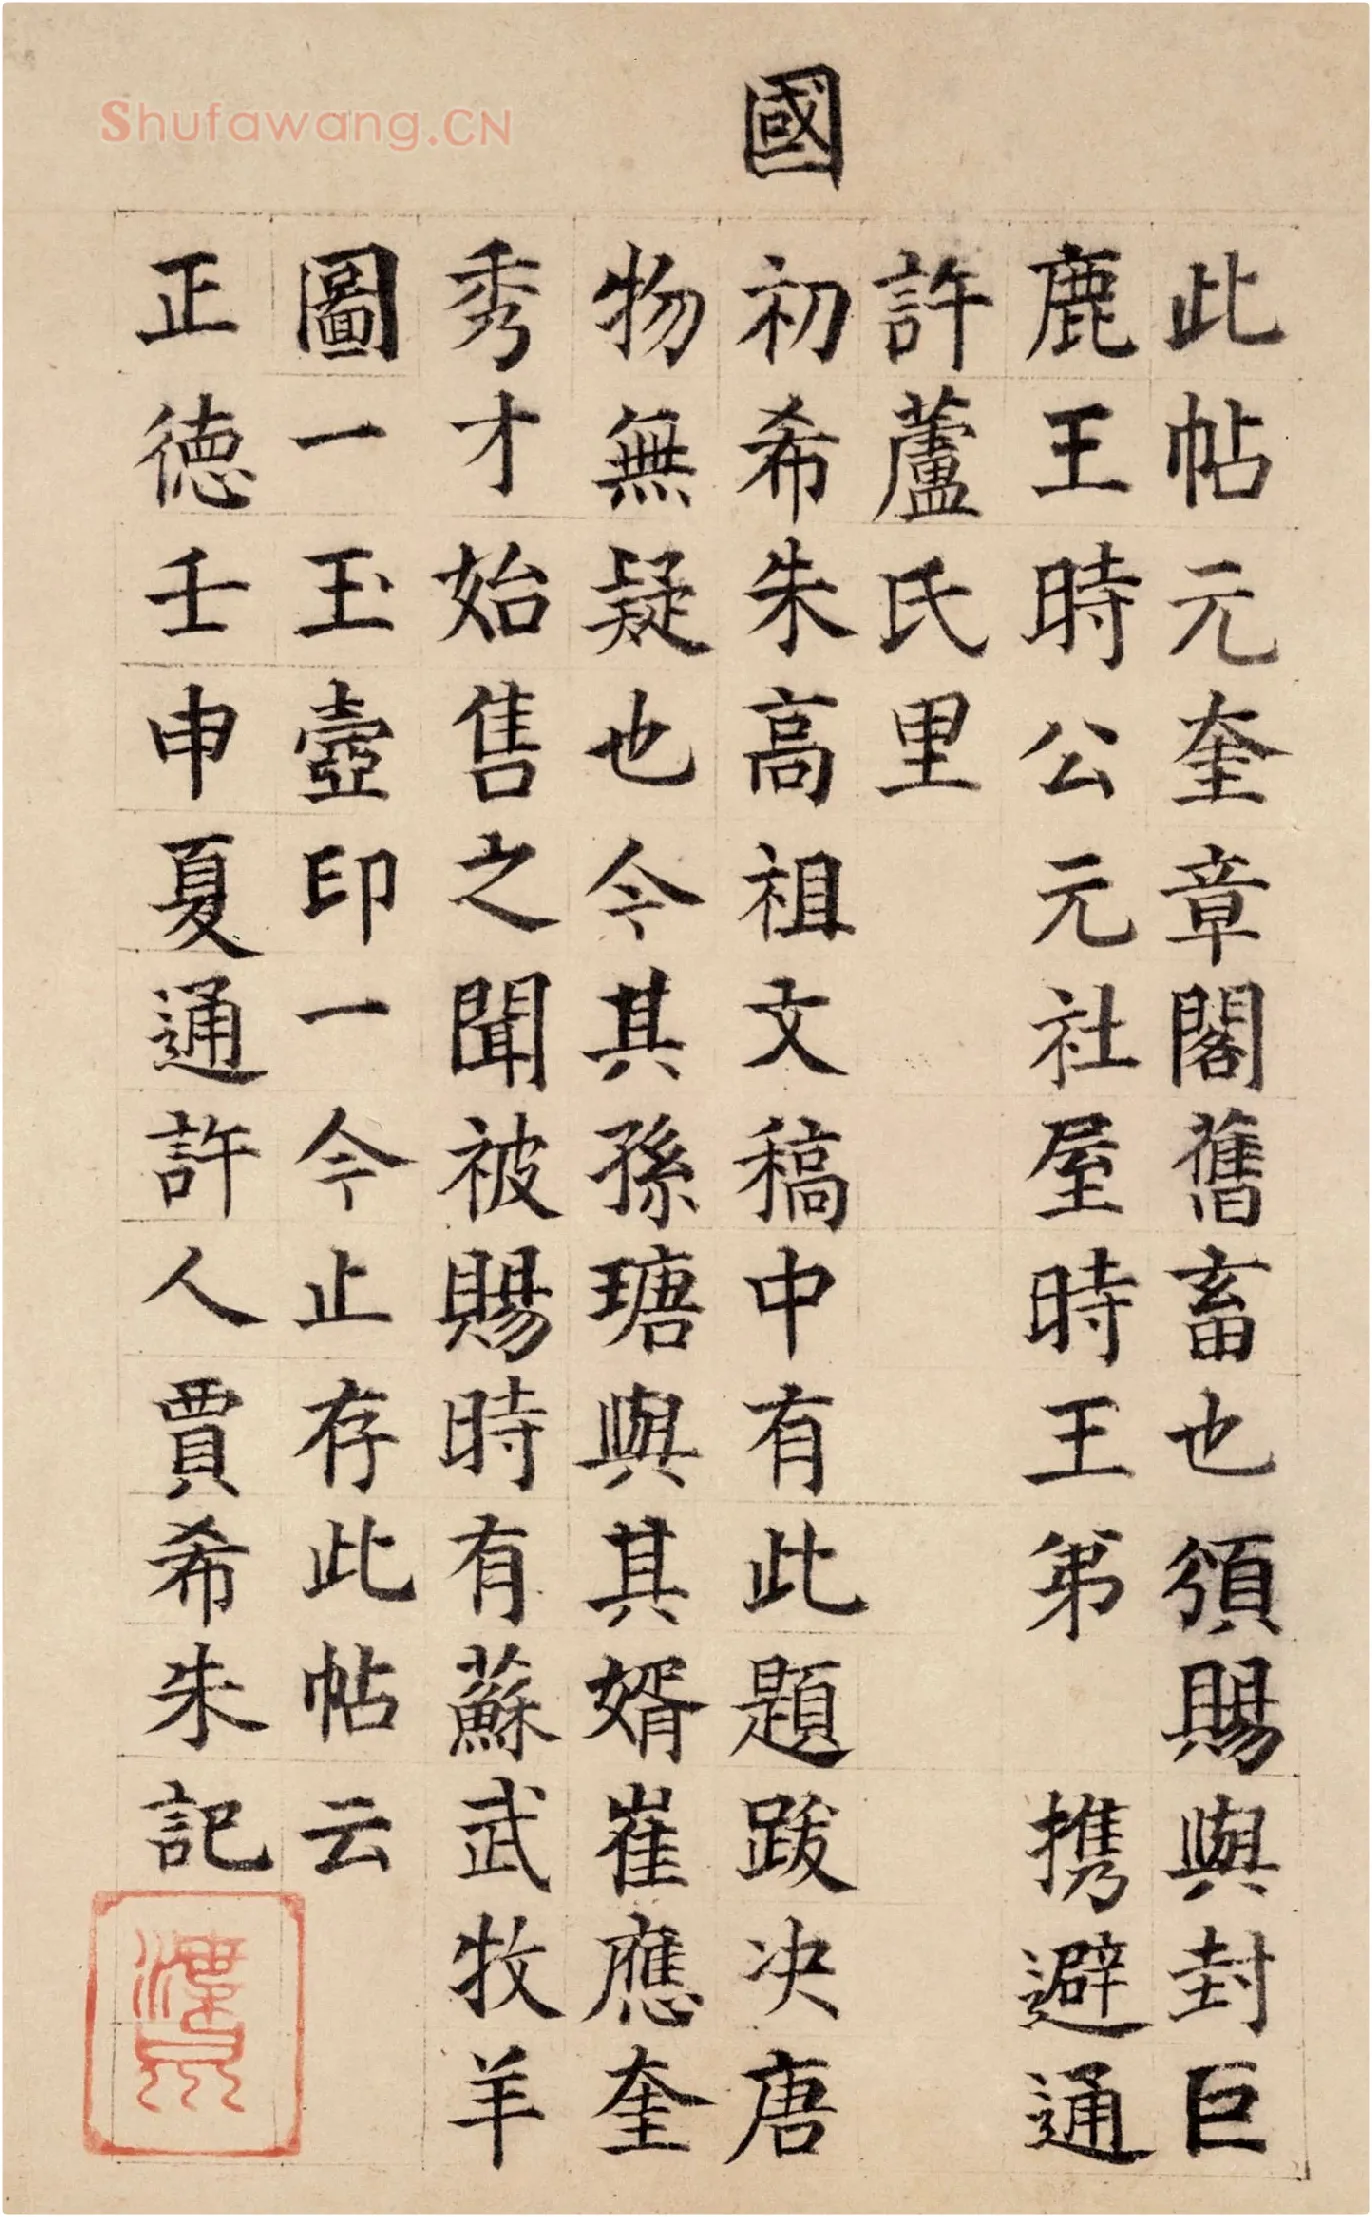 Shufawang.CN
此帖元奎章閣舊畜也頒賜與封巨
鹿王時公元社屋時王弟 携避通
許蘆氏里
國初希朱高祖文稿中有此題跋决唐
物無疑也今其孫瑭與其婿崔應奎
秀才始售之聞被賜時有蘇武牧羊
圖一玉壺印一今止存此帖云
正德壬申夏通許人賈希朱記